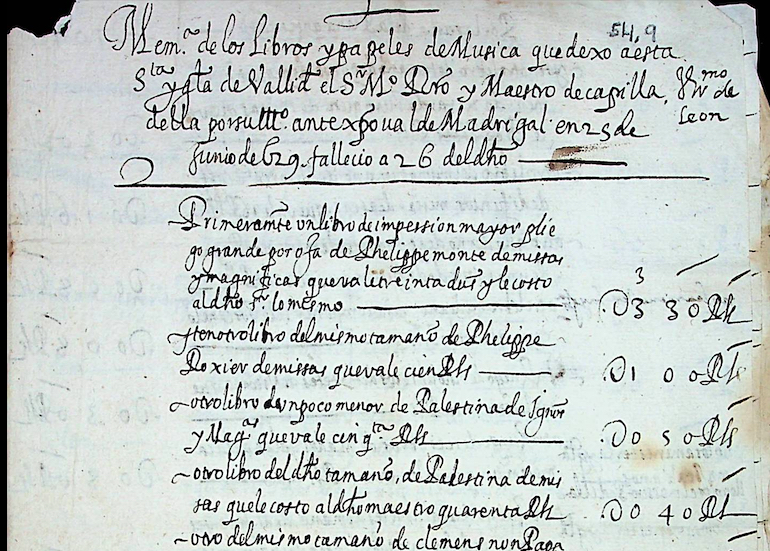 54,9
Mem.ª de los Libros y papeles de Musica que dexo a esta
S.ta ygl.ª de Vall.id el S.r M.º y Maestro de capilla, Jer.mo de Leon
della por su ante xpoual de Madrigal en 25 de
Junio de 629. fallecio a 26 del dho
Primeramte vn libro de impression mayor plie
go grande por de Phelippe monte de missas
y magnificas que vale treinta dus y le costo
al dho s.r lo mesmo U3 3 0 Rls
yten otro libro del mismo tamano de Phelippe
Roxier de missas que vale cien Rls U1 0 0 Rls
otro libro de vn poco menor de Palestina de ygnos
y Mag.s que vale cinq.ta Rls U0 5 0 Rls
otro libro del dho tamano, de Palestina de mis
sas que le costo al dho maestro quarenta Rls U0 4 0 Rls
otro del mismo tamano de clemens non Papa